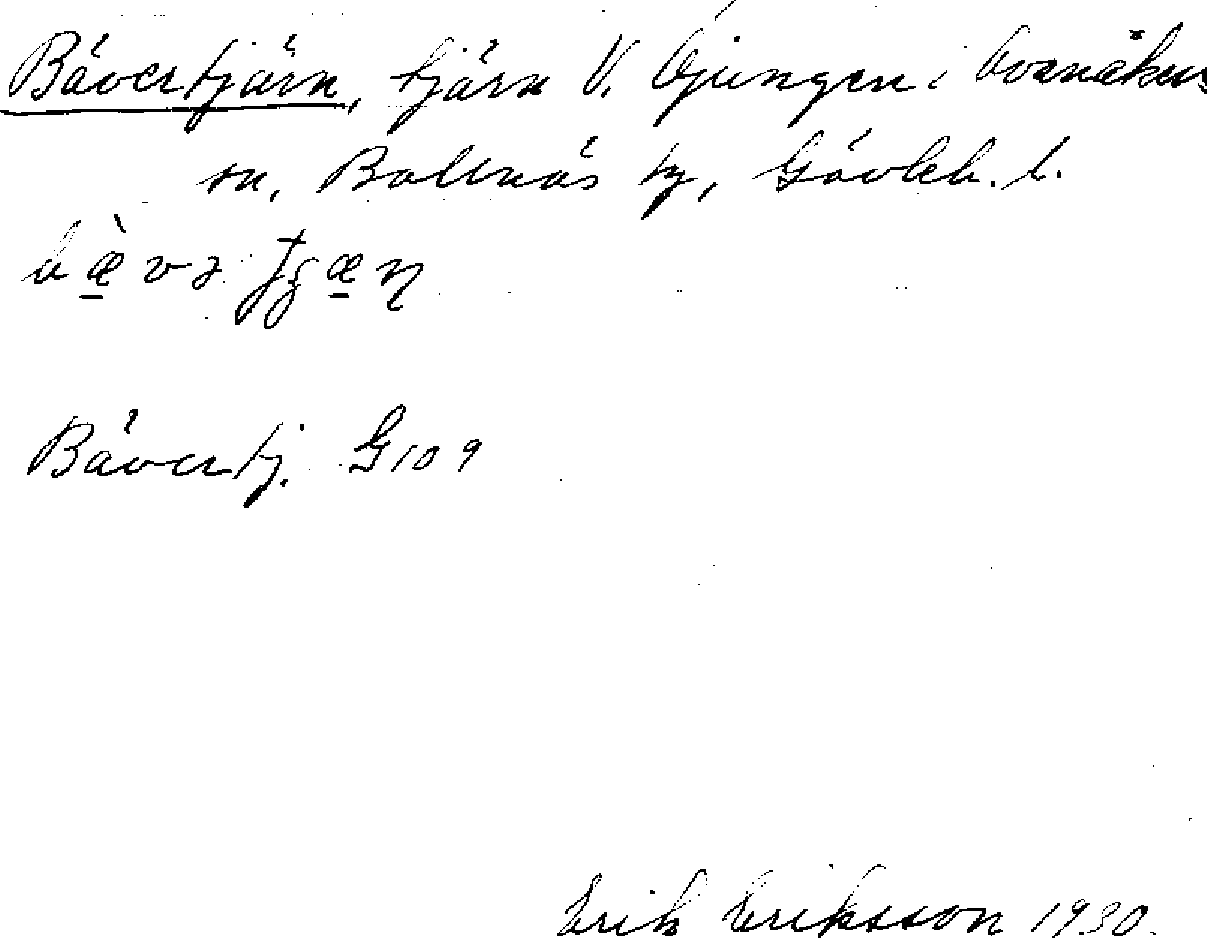 Bävertjärn, tjärn V. Öjungen i Ovanåkers
sn, Bollnäs tg, Gävleb. l.
Bävertj. G109
Erik Eriksson 1930.